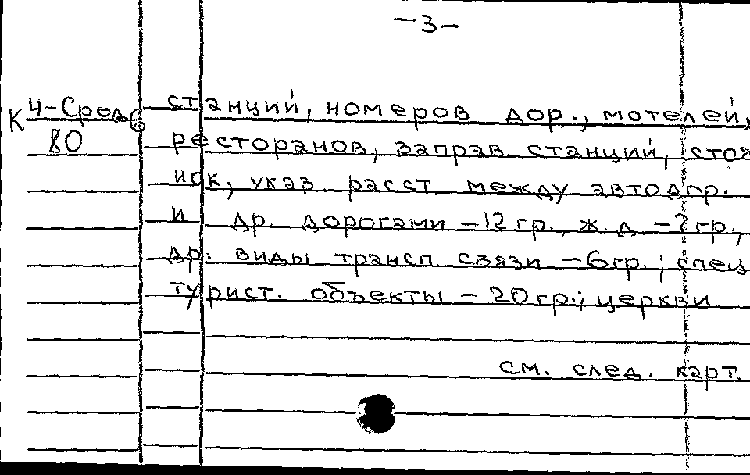 -3-
К 4-Сред
80
станций, номеров дор., мотелей,
ресторанов, заправ станций, стоя
нок, указ. расст между автодор.
и др. дорогами -12 гр., ж. д -2 гр.,
др. виды трансп связи -6гр.; спец
турист. объекты - 20 гр.; церкви
см. след. карт.